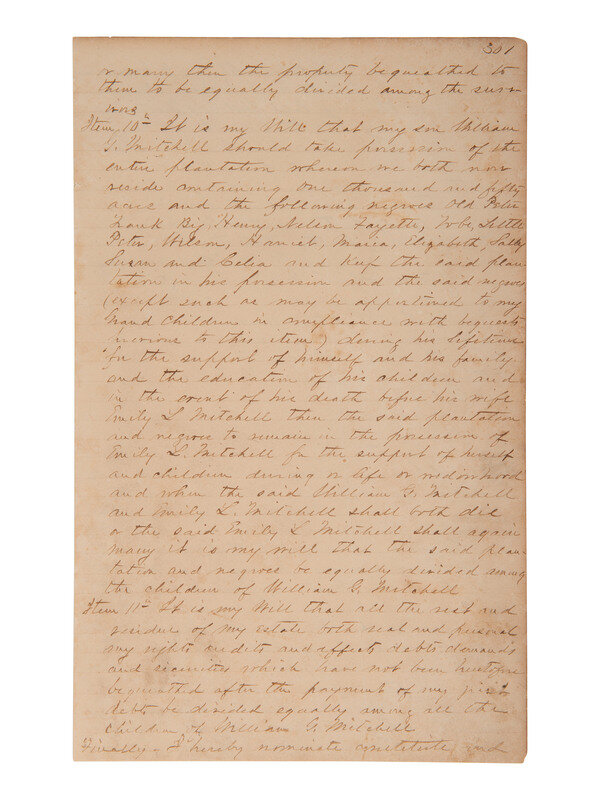 301
or marry then the property bequeathed to
them to be equally divided among the surv-
ivors
Item 10th It is my Will that my son William
G. Mitchell should take possession of the
entire plantation whereon we both now
reside containing one thousand and fifty
acres and the following negroes Old Peter
Frank Big, Henry, Nelson Fayette, Little
Peter, Wilson, Harriet, Maria, Elizabeth, Sally
Susan and Celia and keep the said plan-
tation in his possession and the said negroes
(except such as may be apportioned to my
Grand Children in compliance with bequests
previous to this item) during his lifetime
for the support of himself and his family
and the education of his children and
in the event of his death before his wife
Emily L Mitchell then the said plantation
and negroes to remain in the possession of
Emily L. Mitchell for the support of herself
and children during or life or widowhood
and when the said William G. Mitchell
and Emily L. Mitchell shall both die
or the said Emily L Mitchell shall again
marry it is my will that the said plan-
tation and negroes be equally divided among
the children of William G. Mitchell
Item 11th It is my Will that all the rest and
residue of my estate both real and personal
my rights credits and effects debts demands
and securities which have not been heretofore
bequeathed after the payment of my just
debts be divided equally among all the
children of William G. Mitchell
Finally I hereby nominate constitute and